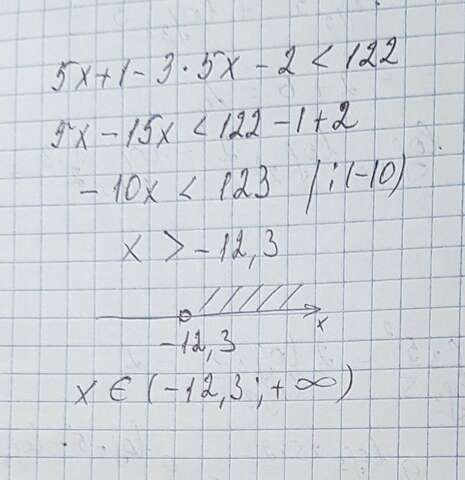 5x+1-3·5x-2<122
5x-15x<122-1+2
-10x<123 /:(-10)
x>-12,3
x
-12,3
x∈(-12,3;+∞)